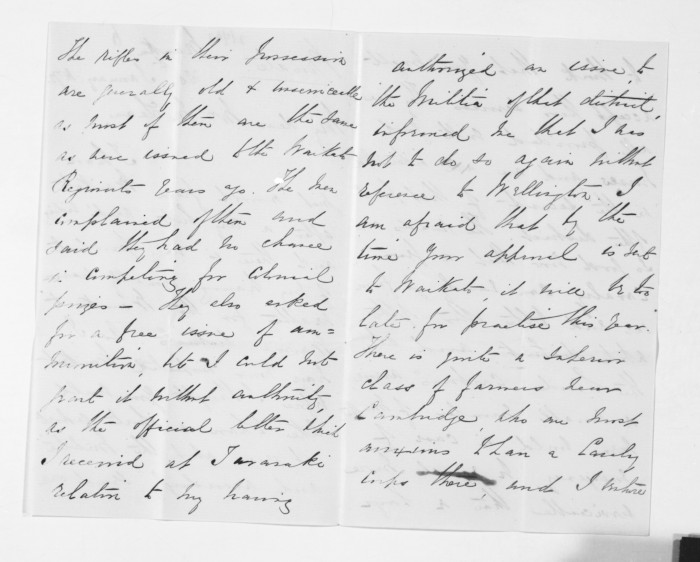 The Rifles in their possession
are generally old & unserviceable
as most of them are the same
as were issued to the Waikato
Regiments years ago. The men
complained of them and
said they had no chance
in competing for Colonial
prizes – They also asked
for a free issue of am=
munition, but I could not
grant it without authority,
as the official letter that
I received at Taranaki
relative to my having
authorized an issue to
the Militia of that district,
informed me that I was
not to do so again without
reference to Wellington. I
am afraid that by the
time your approval is sent
to Waikato, it will be too
late for practise this year.
There is quite a superior
class of farmers near
Cambridge, who are most
anxious to have a Cavalry
corps there, and I